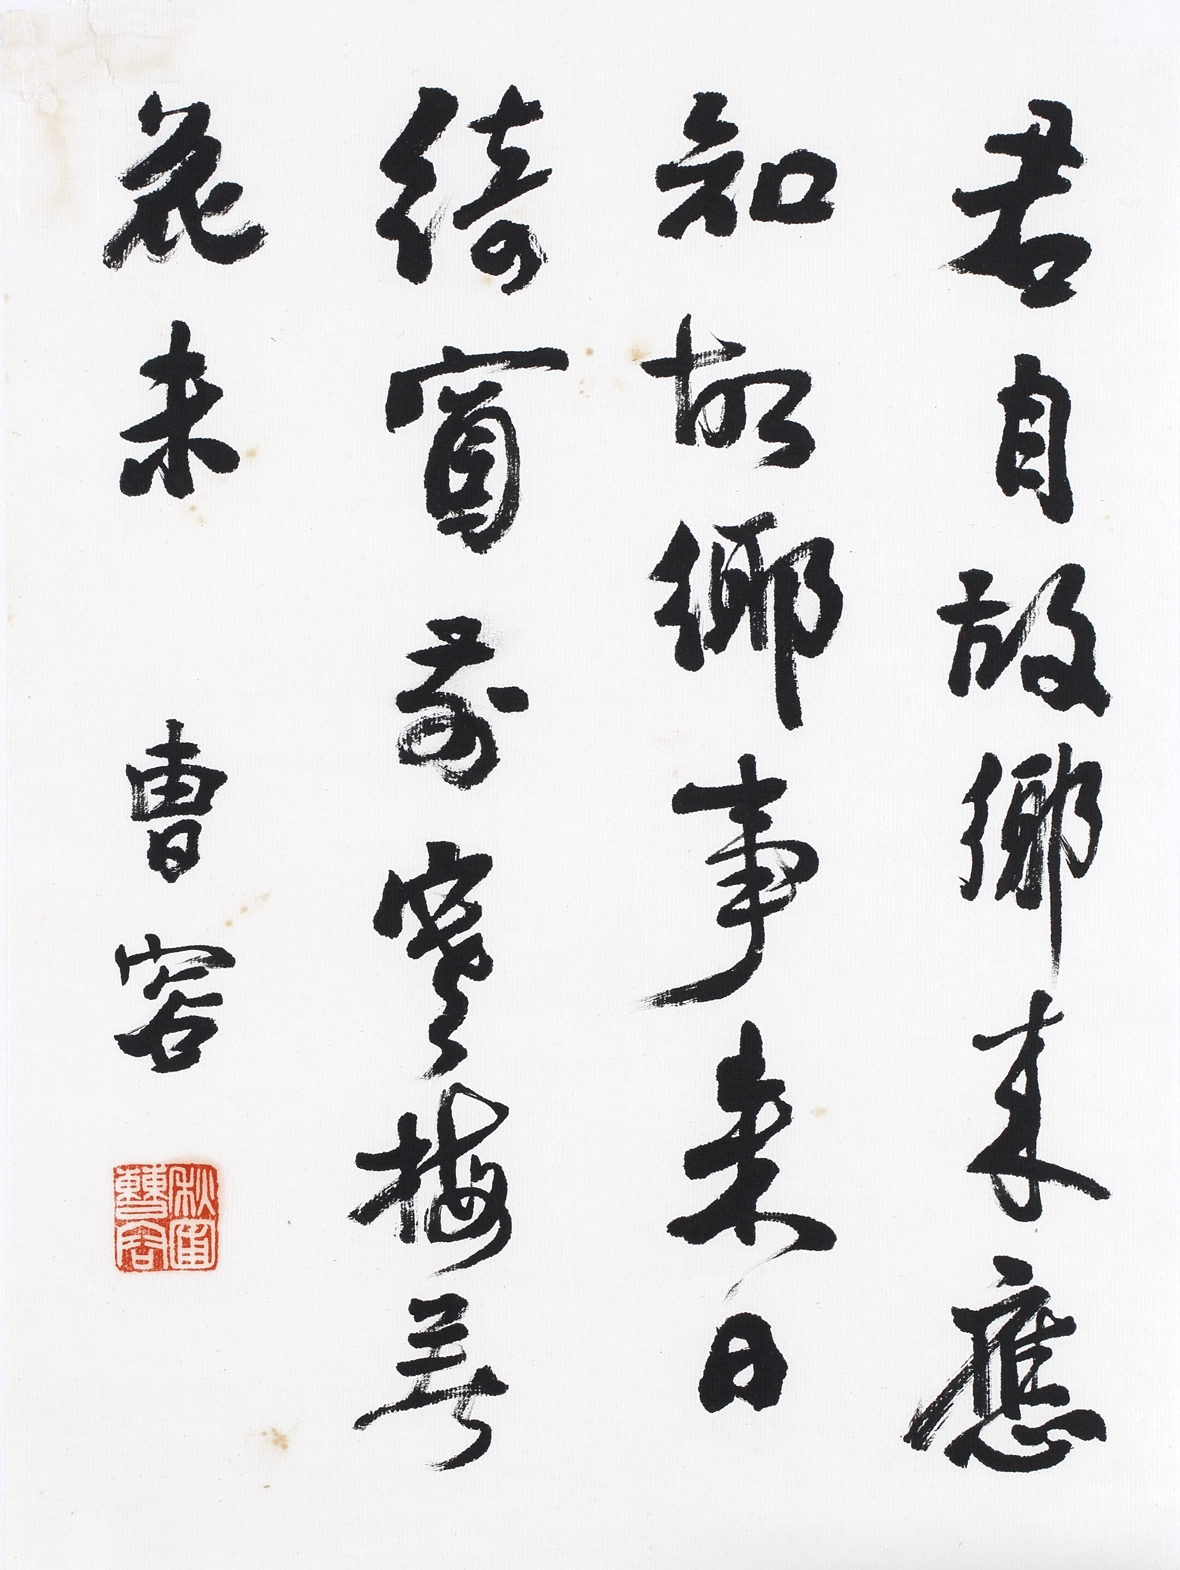 君自故鄉來應
知故鄉事來日
綺窗前寒梅著
花未
曹容
秋圃
曹容